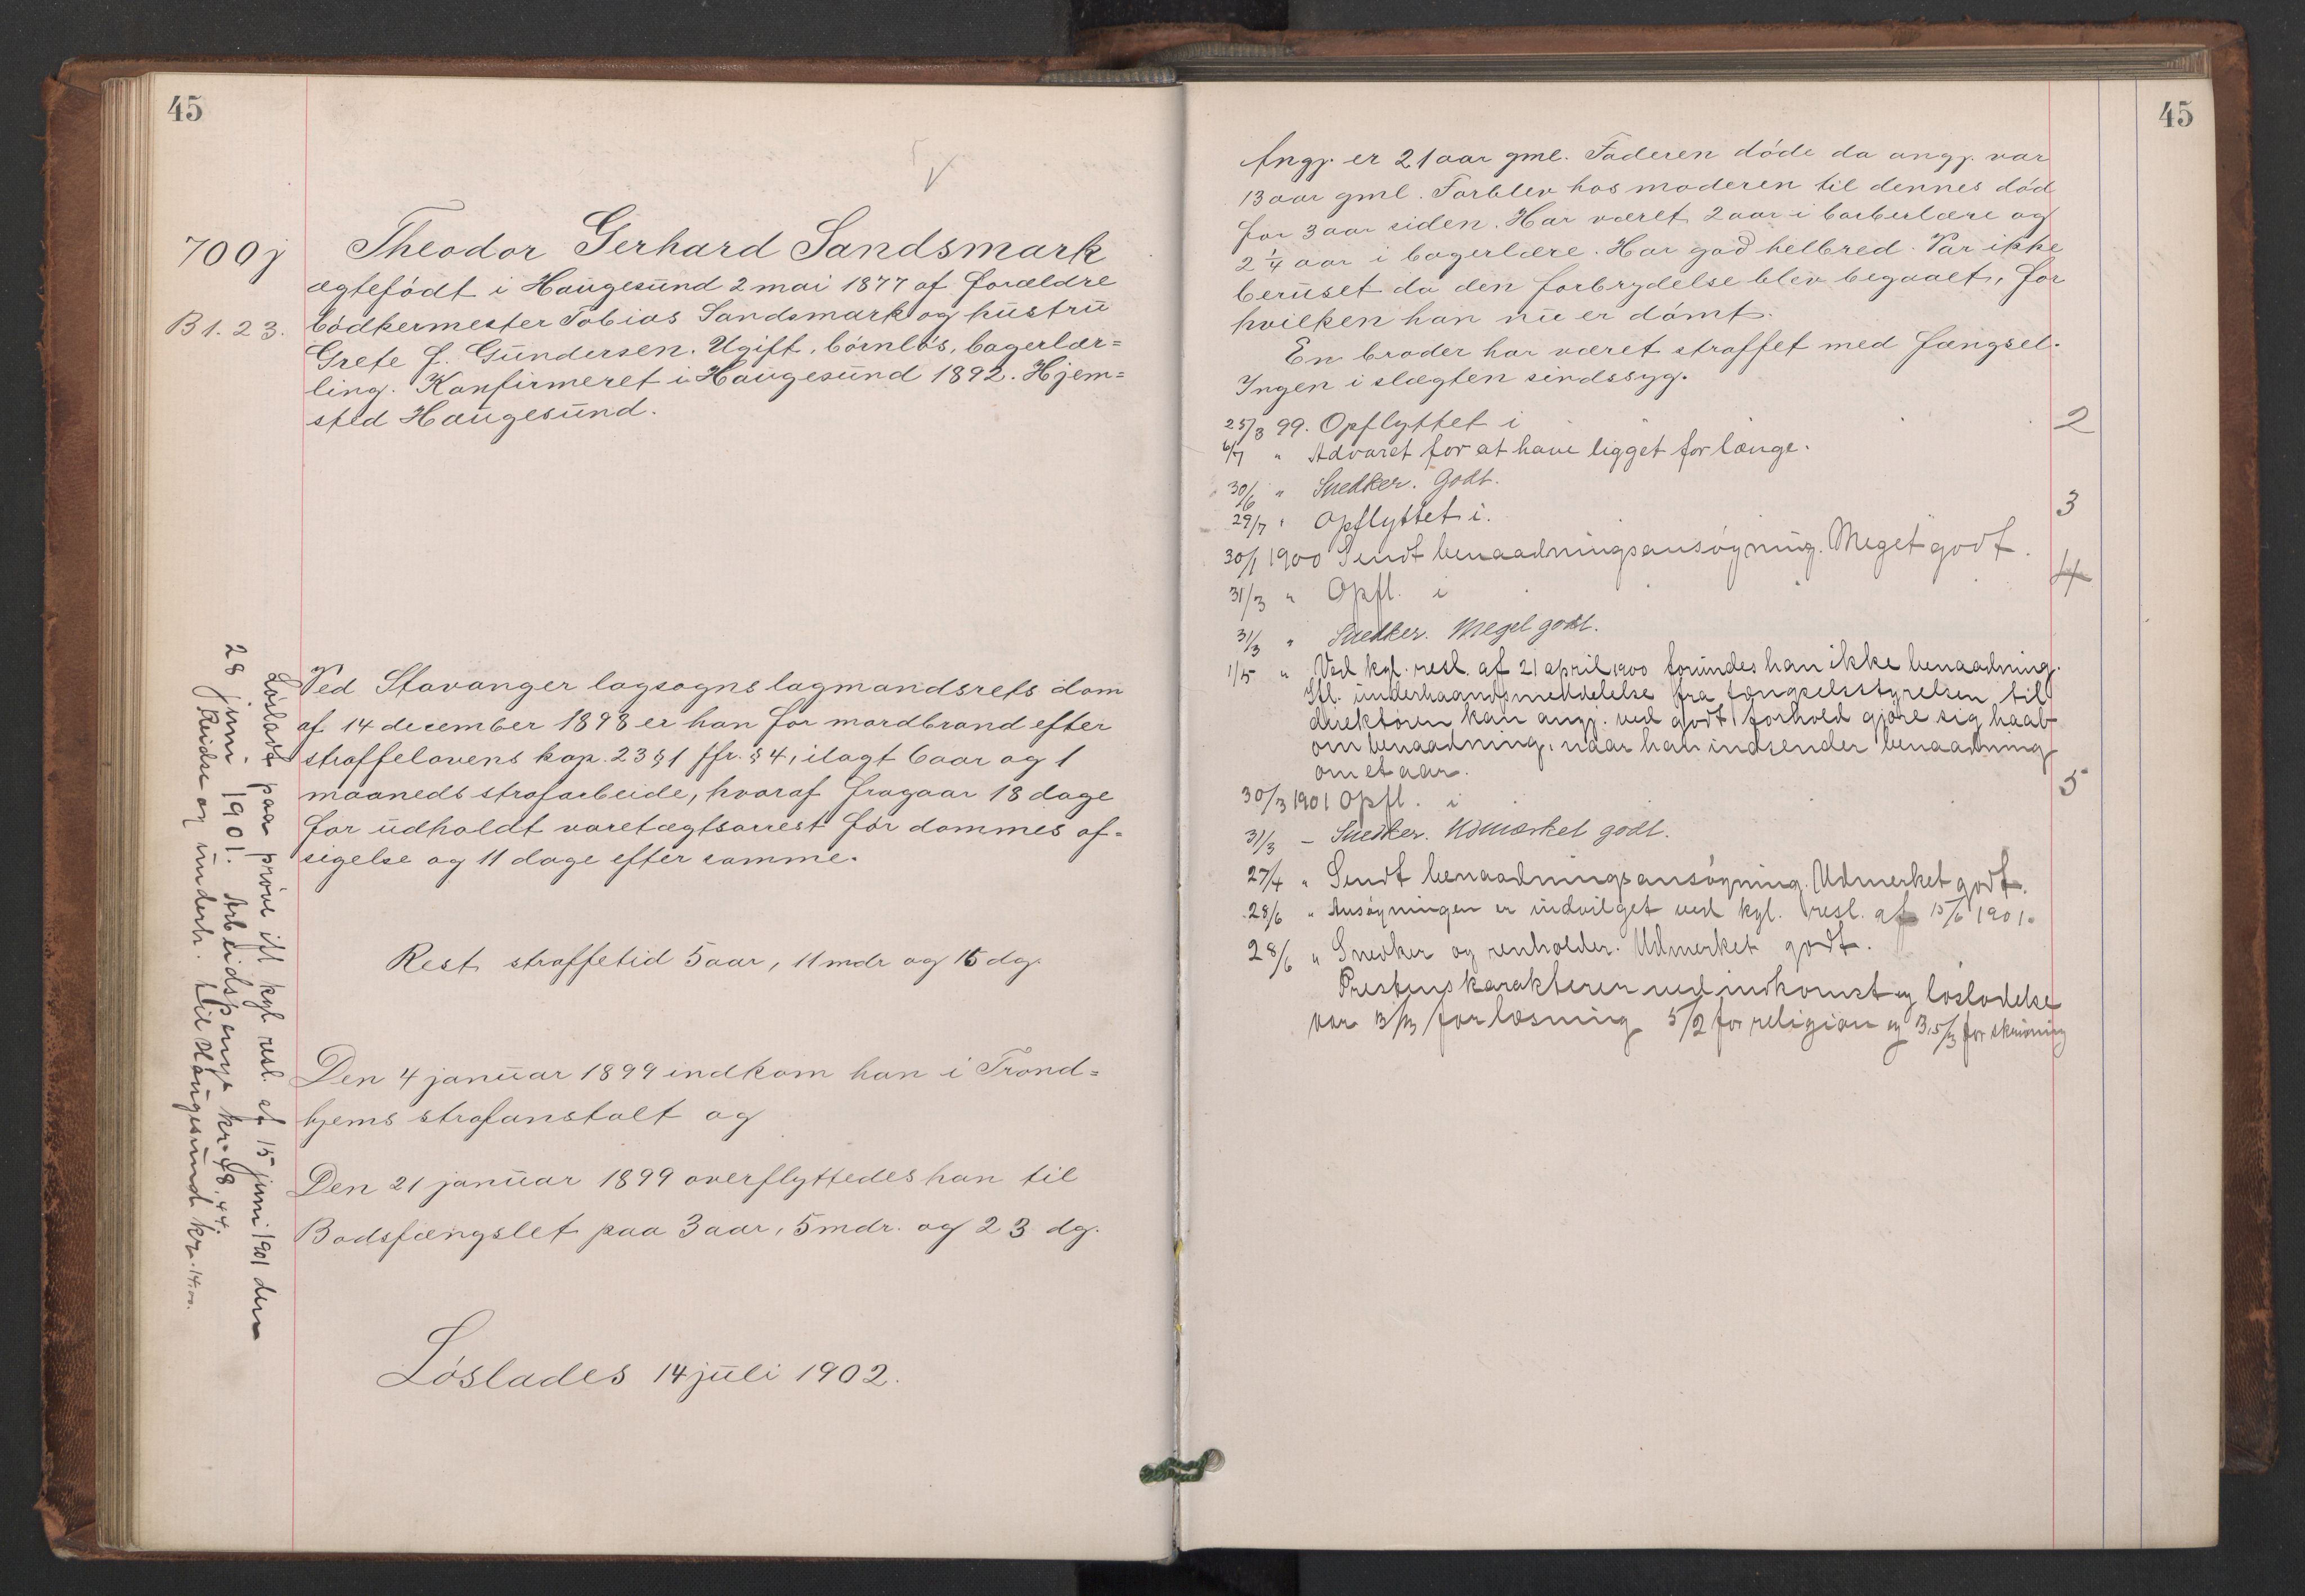 45
700j
B 1. 23.
Theodor Gerhard Sandsmark
ægtefödt i Haugesund 2 mai 1877 af forældre
bödkermester Tobias Sandsmark og hustru
Grete f. Gundersen. Ugift, börnlös, bagerlær=
ling. Konfirmeret i Haugesund 1892. Hjem=
sted Haugesund.
Ved Stavanger lagsogns lagmandsrets dom
af 14 december 1898 er han for mordbrand efter
straffelovens kap. 23 § 1 jfr. § 4, ilagt 6 aar og 1
maaneds strafarbeide, hvoraf fragaar 18 dage
for udholdt varetægtsarrest för dommes af=
sigelse og 11 dage efter samme.
Rest straffetid 5 aar, 11 mdr og 15 dg.
Den 4 januar 1899 indkom han i Trond=
hjems strafanstalt og
Den 21 januar 1899 overflyttedes han til
Bodsfængslet paa 3 aar, 5 mdr. og 23 dg.
Löslades 14 juli 1902.
Lösladt paa pröve ifl kgl resl. af 15 juni 1901 den
28 juni 1901. Arbeidspenge kr. 48.44.
Reidse og underh. til Haugesund kr. 14.00.
45
Angj. er 21 aar gml. Faderen döde da angj. var
13 aar gml. Forblev hos moderen til dennes död
for 3 aar siden. Har været 2 aar i barberlære og
2 1/4 aar i bagerlære. Har god helbred. Var ikke
beruset da den forbrydelse blev begaaet, for
hvilken han nu er dömt.
En broder har været straffet med fængsel.
Ingen i slægten sindssyg.
25/3 99. Opflyttet i 2
6/7 " Advaret for at have ligget for længe.
30/6 " Snedker. Godt.
29/7 " Opflyttet i. 3
30/1 1900 Sendt benaadningsansögning. Meget godt.
31/3 " Opfl. i 4
31/3 " Snedker. Meget godt.
1/5 " Ved kgl. resl. af 21 april 1900 forundes han ikke benaadning.
Ifl. underhaandsmeddelelse fra fængselsstyrelsen til
direktören kan angj. ved godt forhold gjöre sig haab
om benaadning, naar han indsender benaadning
om et aar.
30/3 1901 Opfl. i 5
31/3 – Snedker. Udmærket godt.
27/4 " Sendt benaadningsansögning. Udmerket godt.
28/6 " Ansögningen er indvilget ved kgl. resl. af 15/6 1901.
28/6 " Snedker og renholder. Udmerket godt.
Prestens karakterer ved indkomst og löslodelse
var 3/3 for læsning 5/2 for religion og 3,5/3 for skrivning